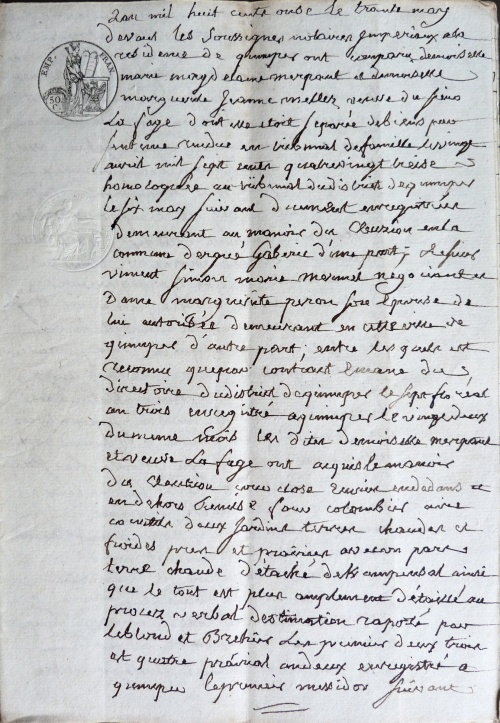 L'an mil huit cents onze le trante may
devant les soussignés notaires Imperiaux a la
residence de quimper ont comparu demoiselle
marie magdelaine merpaut et demoiselle
marguerite Jeanne mellez veuve du sieur
La fage dont elle etoit séparée de biens par
sentence rendue en tribunal de famille le vingt
avril mil sept cents quatrevingt treise
homologuée au tribunal du district de quimper
le six may suivant duement enregistrées
demeurant au manoir du Cleuziou en la
commune d'ergué Gaberic d'une part; le sieur
vincent Simon marie mermet negociant et
Dame marguerite peron son Epouse de
lui autorisée demeurant en cette ville de
quimper d'autre part; entre les quels est
reconnu que par contrat Emane du
directoire du district de quimper le sept floréal
an trois enregistré a quimper le vingt deux
du meme mois les dites demoiselle merpaut
et veuve La fage ont acquis le manoir
du Cleuziou cour close en dedans et
en dehors Remise four colombier avec
deux Jardins terres chaudes et
froides prées et prairies avec un parc
terre chaude détaché de Kampensal ainsi
que le tout est plus amplement détaillé au
procez verbal destimation raporté par
leblond et Brehier les premier deux trois
et quatre prairial an deux enregistré a
quimper le premier messidor suivant
EMP. FRAN.
50